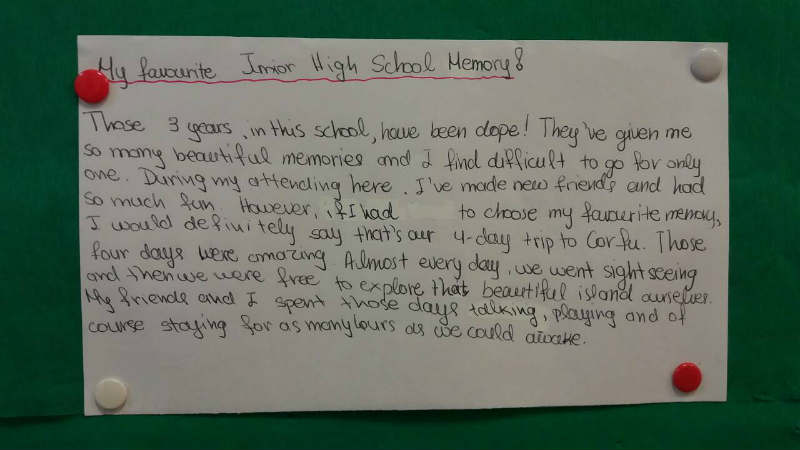 My favourite Junior High School Memory!
Those 3 years, in this school, have been dope! They've given me
so many beautiful memories and I find difficult to go for only
one. During my attending here, I've made new friends and had
so much fun. However, if I had to choose my favourite memory,
I would definitely say that's our 4-day trip to Corfu. Those
four days were amazing Almost every day, we went sightseeing
and then we were free to explore that beautiful island ourselves.
My friends and I spent those days talking, playing and of
course staying for as many hours as we could awake.